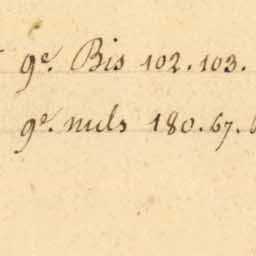 9e. Bis 102.103.
9e. nuls 180.67.